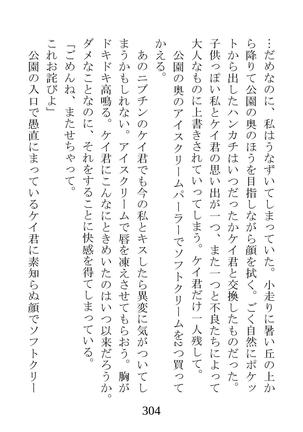 …だめなのに、私はうなずいてしまっていた。小走りに暑い丘の上か
ら降りて公園の奥のほうを目指しながら顔を拭く。ごく自然にポケッ
トから出したハンカチはいつだったかケイ君と交換したものだった。
子供っぽい私とケイ君の思い出が一つ、また一つと不良たちによって
大人なものに上書きされていってしまう。ケイ君だけ一人残して。
公園の奥のアイスクリームパーラーでソフトクリームを2つ買って
かえる。
あのニブチンのケイ君でも今の私とキスしたら異変に気がついてし
まうかもしれない。アイスクリームで唇を凍えさせてもらおう。胸が
ドキドキ高鳴る。ケイ君にこんなにときめいたのはいつ以来だろうか。
ダメなことなのに、それをすることに快感を得てしまっている。
「ごめんね、またせちゃって。
これお詫びよ」
公園の入口で愚直にまっているケイ君に素知らぬ顔でソフトクリー
304